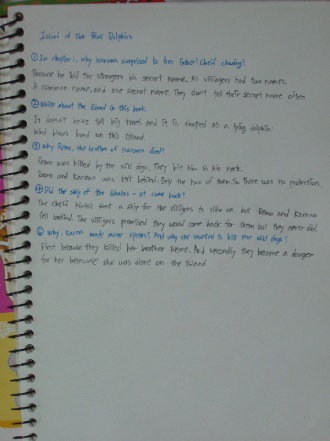 Island of the Blue Dolphins
① In chapter 1, why karana surprised to her father? Chief chowig?
Because he told the strangers his secret name. All villigers had two names.
A common name, and one secret name. They don't tell their secret name often
② Write about the island in this book.
It doesn't have tall big trees and it is shaped as a lying dolphin.
Wind blows hard on this island.
③ Why Remo, the brother of karana died?
Remo was killed by the wild dogs. They bite him in his neck.
Remo and Karana was left behind. Only the two of them. So there was no protection.
④ Did the ship of the Ghalas-at come back?
The chief sent a ship for the villiges to ride on, but Remo and Karana
fell behind. The villigers promised they would come back for them but they never did.
⑤ Why, karana made more spears? And why she wanted to kill the wild dogs?
First because they killed her brother Remo. And secondly they became a danger
for her because she was alone on the island.